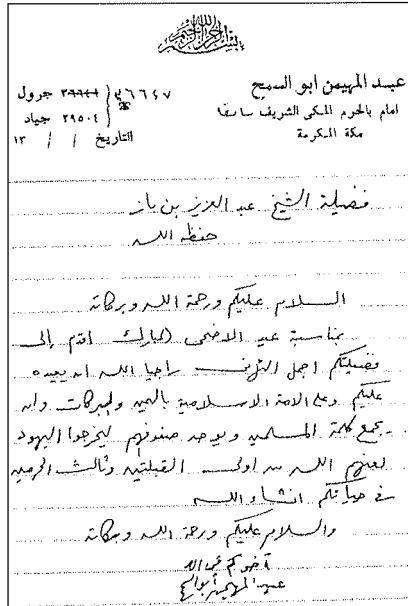 بسم الله الرحمن الرحيم
عبد المهيمن ابو السمح
امام بالحرم المكي الشريف سابقا
مكة المكرمة
٣٦٦٤٧
جرول
٢٩٥٠٤ جياد
التاريخ / / ١٣
فضيلة الشيخ عبد العزيز بن باز
حفظه الله
السلام عليكم ورحمة الله وبركاته
بمناسبة عيد الاضحى المبارك اقدم إلى
فضيلتكم اجمل التهاني راجيا الله ان يعيده
عليكم وعلى الامة الاسلامية باليمن والبركات وان
يجمع كلمة المسلمين ويوحد صفوفهم ليخرجوا اليهود
لعنهم الله من اولى القبلتين وثالث الحرمين
في حياتكم انشاء الله
والسلام عليكم ورحمة الله وبركاته
أخوكم في الله
عبد المهيمن أبو السمح